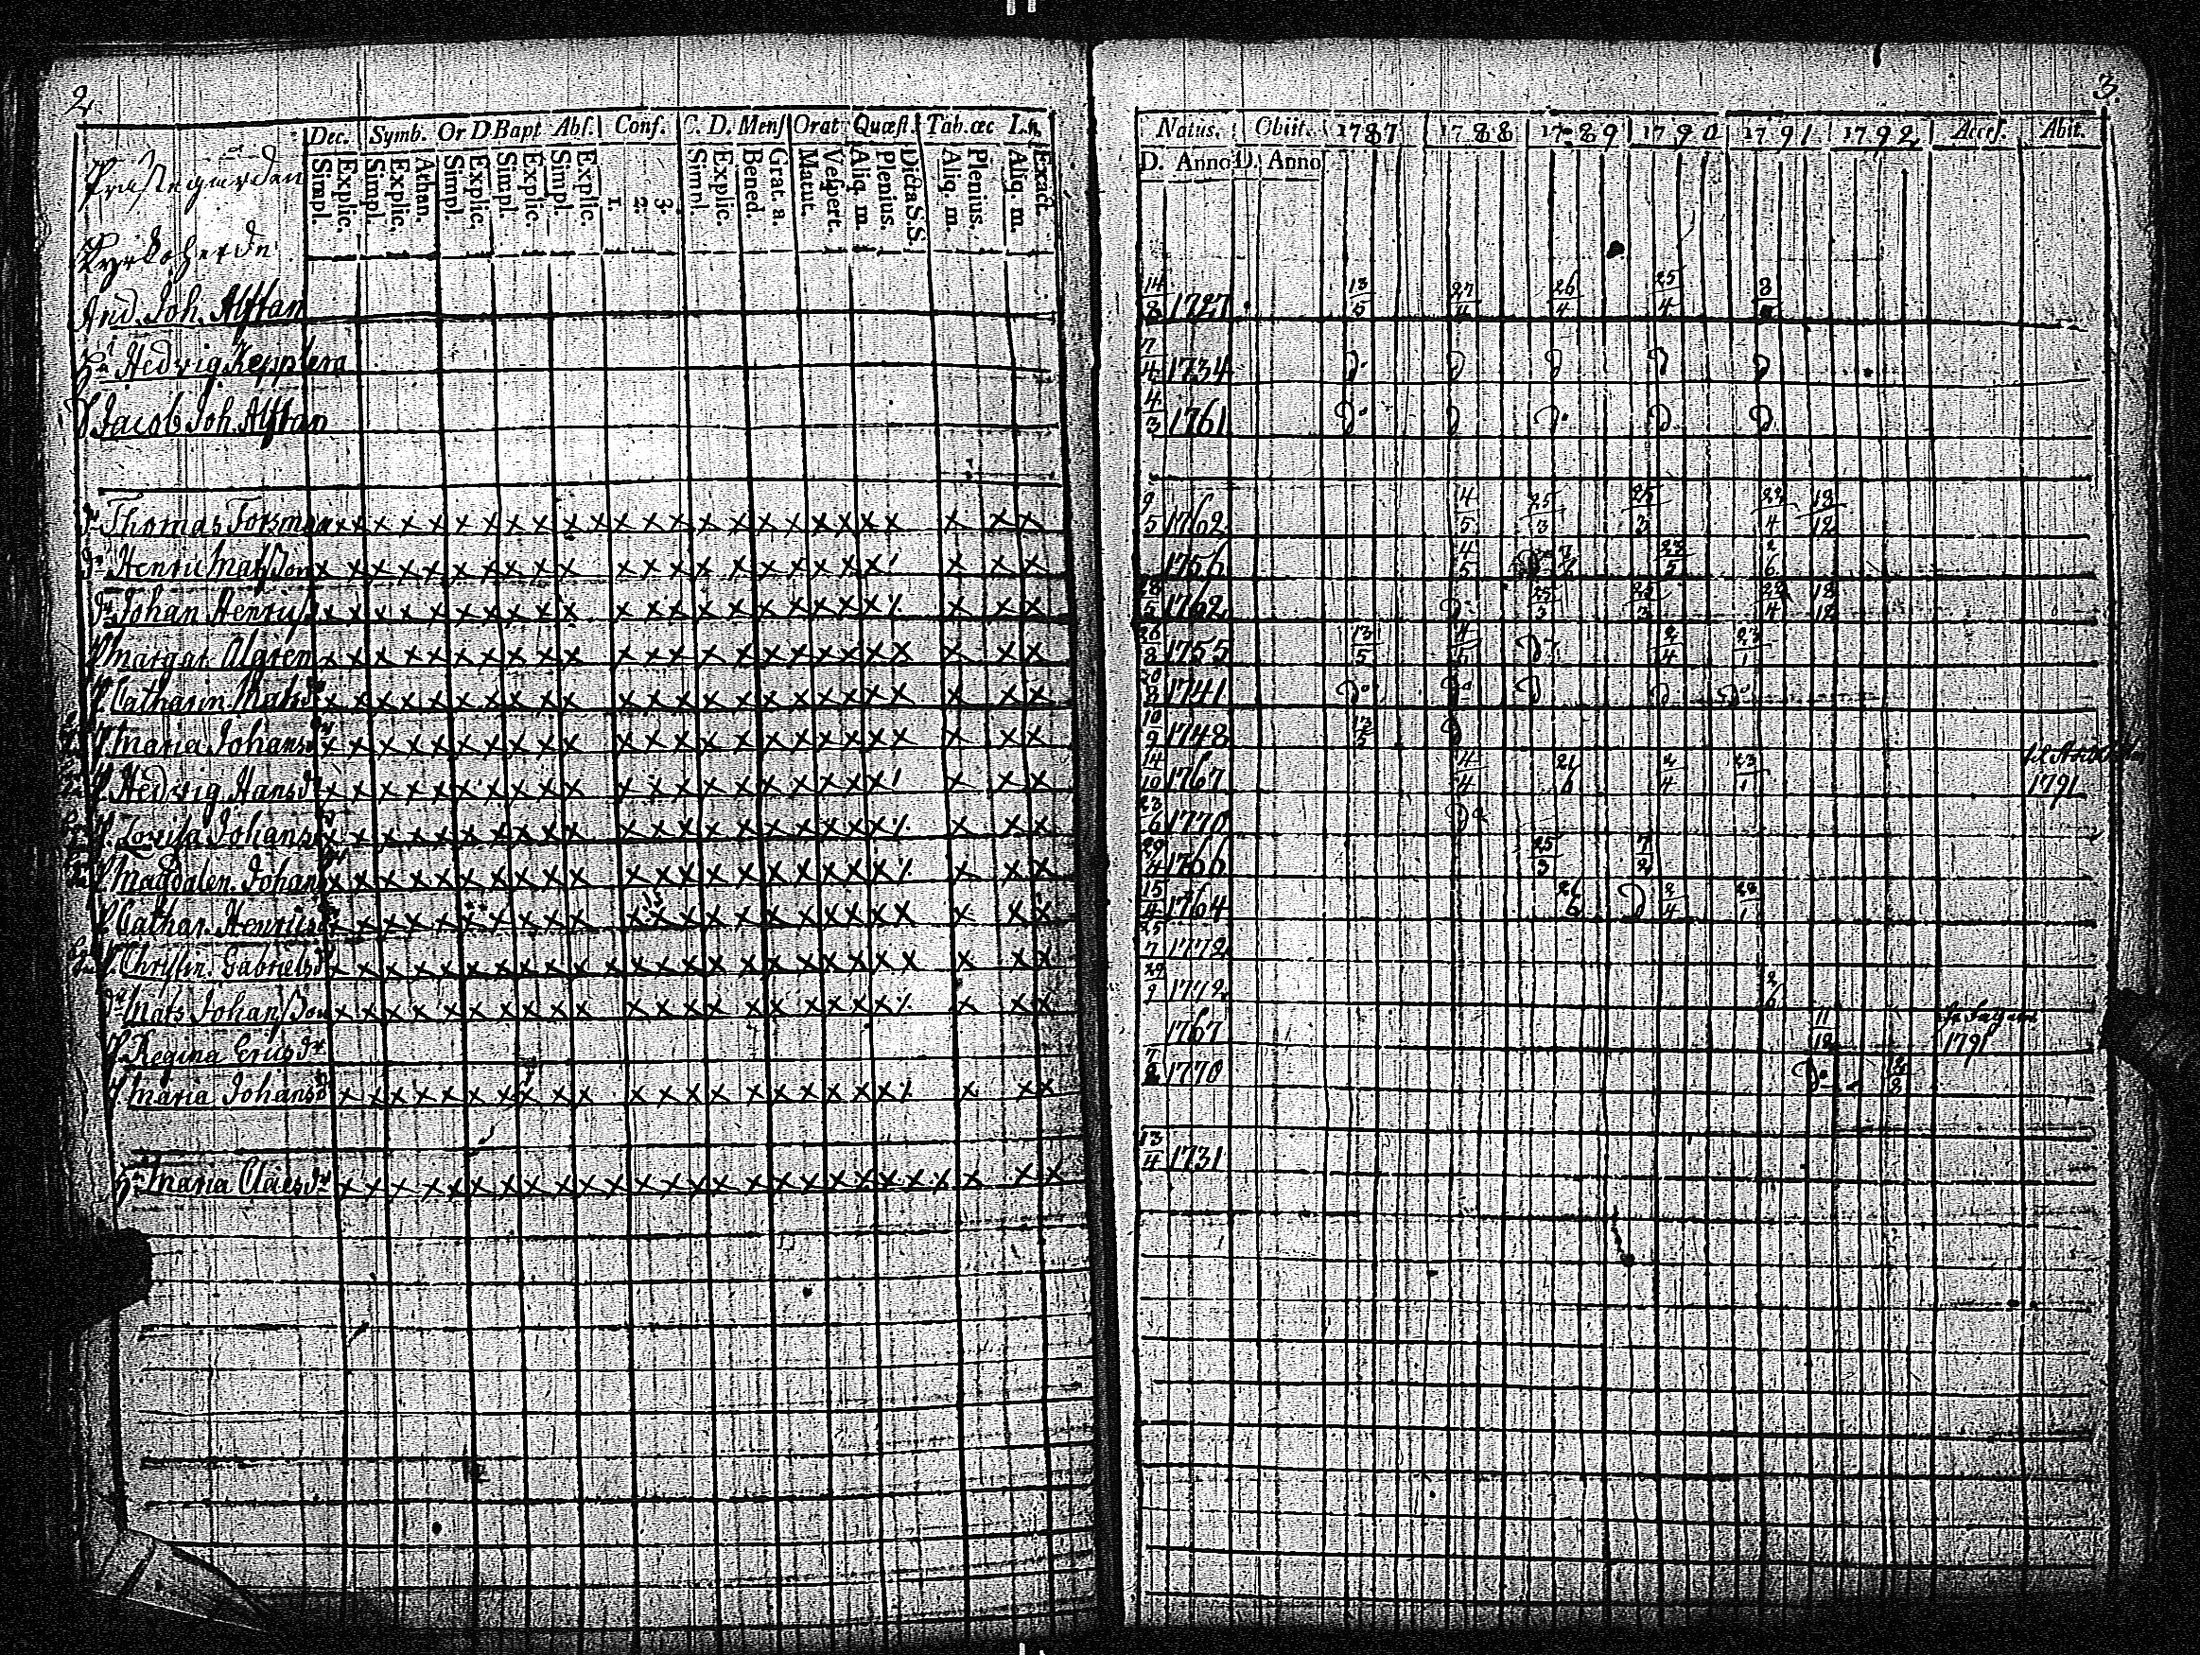 2
Dec. Symb. Or D. Bapt Abs. Conf. C. D. Mens Orat Quæst. Tab. œc L. n.
Simpl. Explic. Simpl. Explic. Athan. Simpl. Explic. Simpl. Explic. Simpl. Explic. 1. 2. 3. Simpl. Explic. Bened. Grat. a. Matut. Vespert. Aliq. m Plenius. Dicta S.S. Aliq. m. Plenius. Aliq. m. Exact.
Prästegården
Kyrkoherde
And. Joh. Alftan
Hu Hedvig Keppлera
Jacob Joh. Alftan
Thomas Forsman x x x x x x x x x x x x x x x x x x x x x x x x x
Henric Mats Son x x x x x x x x x x x x x x x x x x x x x x x
Johan Henrics x x x x x x x x x x x x x x x x x x x x x x x
P. Margar. Algren x x x x x x x x x x x x x x x x x x x x x x x
P. Catharin Matsdr x x x x x x x x x x x x x x x x x x x x x x x
P. Maria Johansdr x x x x x x x x x x x x x x x x x x x x x x x
P. Hedvig Hansdr x x x x x x x x x x x x x x x x x x x x x x x
P. Lovisa Johansdr x x x x x x x x x x x x x x x x x x x x x x x
P. Magdalen. Johansdr x x x x x x x x x x x x x x x x x x x x x x x
P. Cathar. Henricsdr x x x x x x x x x x x x x x x x x x x x x x x
P. Christin. Gabrielsdr x x x x x x x x x x x x x x x x x x x x x x x x
Mats Johan Son x x x x x x x x x x x x x x x x x x x x x x x
P. Regina Ericsdr
P. Maria Johansdr x x x x x x x x x x x x x x x x x x x x x x x
Maria Claesdr x x x x x x x x x x x x x x x x x x x x x x x x x x
3.
Natus. Obiit. 1787 1788 1789 1790 1791 1792 Access. Abit.
D. Anno D. Anno
14/8 1727 13/5 27/4 26/4 25/4 3/
7/4 1734 d. d d d d
4/3 1761 d. d d. d. d.
9/5 1762 4/5 25/3 25/3 22/4 18/12
1756 4/5 23/5 2/6
28/5 1762 d. 25/3 25/3 22/4 18/12
26/8 1755 13/5 4/5 do 2/4 23/1
20/8 1741 do. do d d do
10/9 1748 13/5 d
14/10 1767 4/4 21/6 2/4 23/1 1791
23/6 1770 do
29/4 1766 25/3 7/2
15/4 1764 21/6 d 2/4 23/1
25/7 1772
29/9 1772 2/6
1767 11/12 1791
7/2 1770 do 12/8
13/4 1731